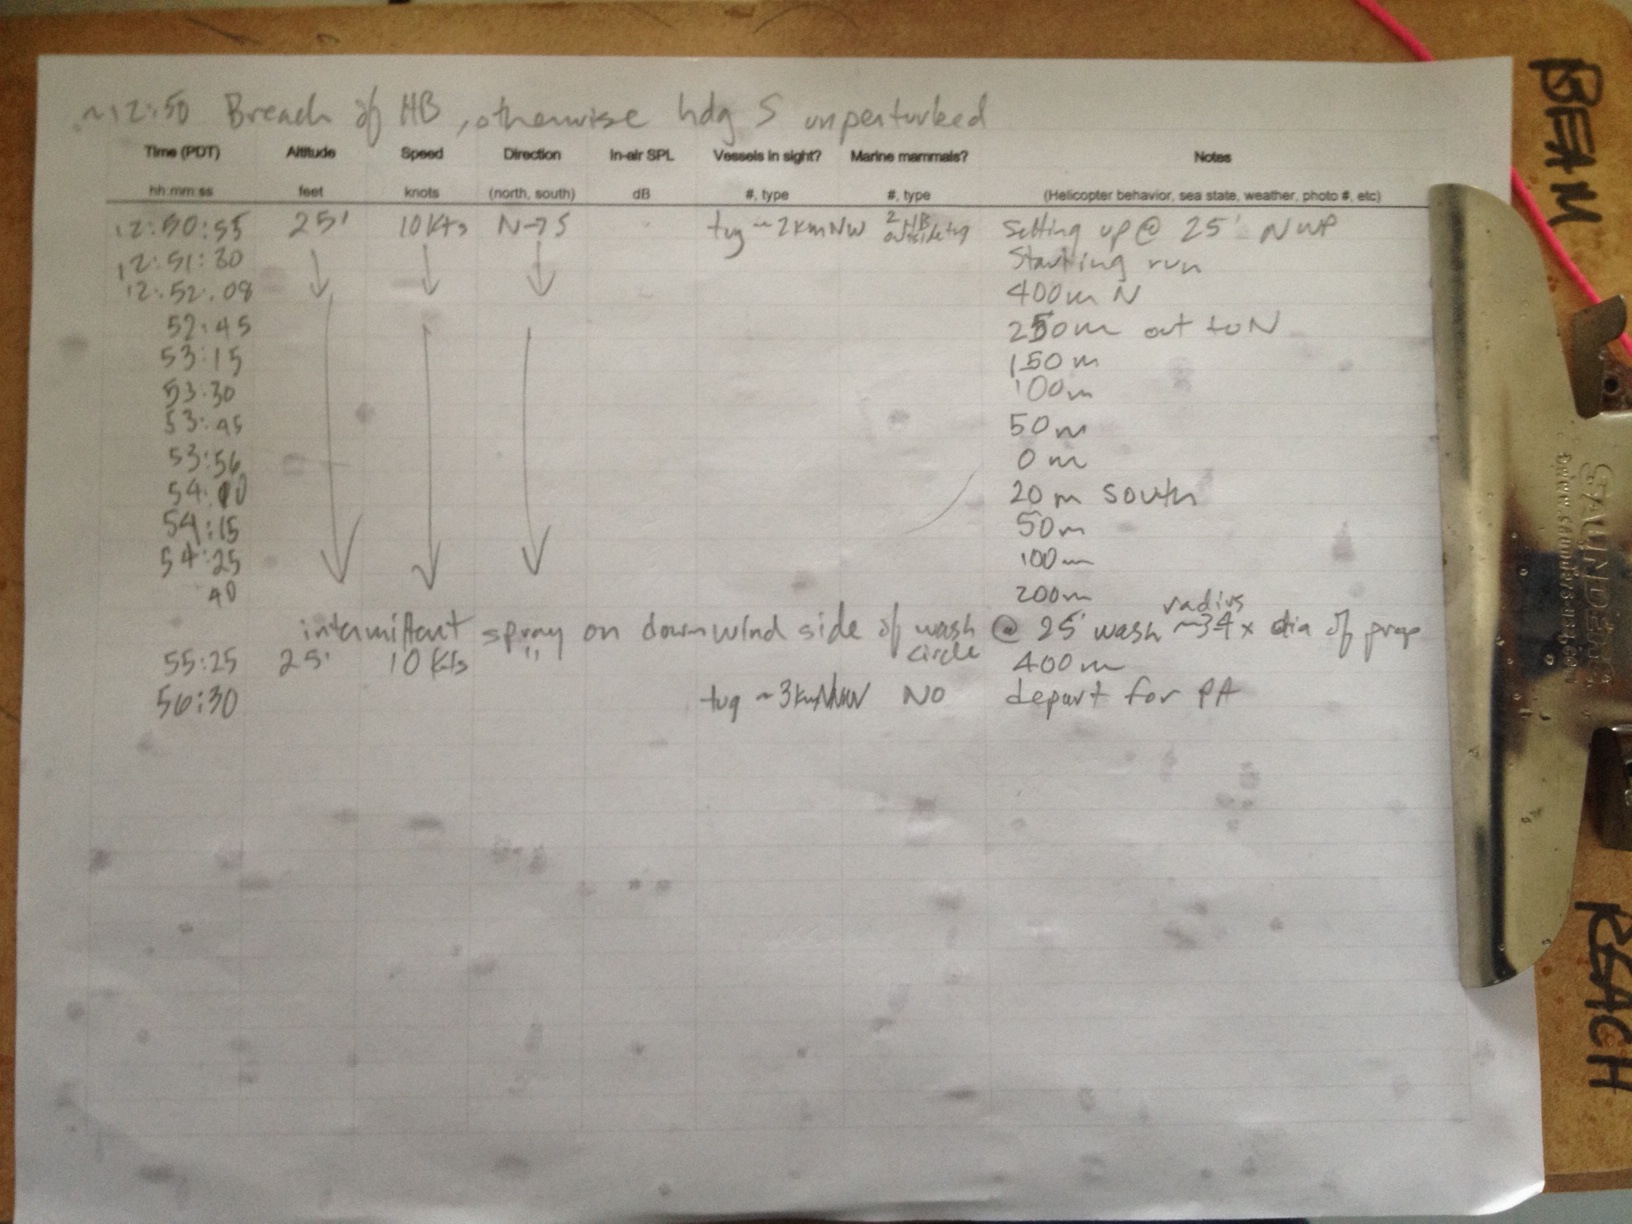 ~12:50 Breach of HB, otherwise hdg S unperturbed
Time (PDT) Altitude Speed Direction In-air SPL Vessels in sight? Marine mammals? Notes
hh:mm:ss feet knots (north, south) dB #, type #, type (Helicopter behavior, sea state, weather, photo #, etc)
12:50:55 25' 10 Kts N→S tug ~2km NW 2 HB outside tug Setting up @ 25' NWP
12:51:30 Starting run
12:52:08 400m N
52:45 250m out to N
53:15 150m
53:30 100m
53:45 50m
53:56 0m
54:10 20m south
54:15 50m
54:25 100m
40 200m
intermittent spray on downwind side of wash circle @ 25' wash radius ~34x dia of prop
55:25 25' 10 Kts " 400m
56:30 tug ~3km NNW NO depart for PA
BEAM
REACH
SAUNDERS